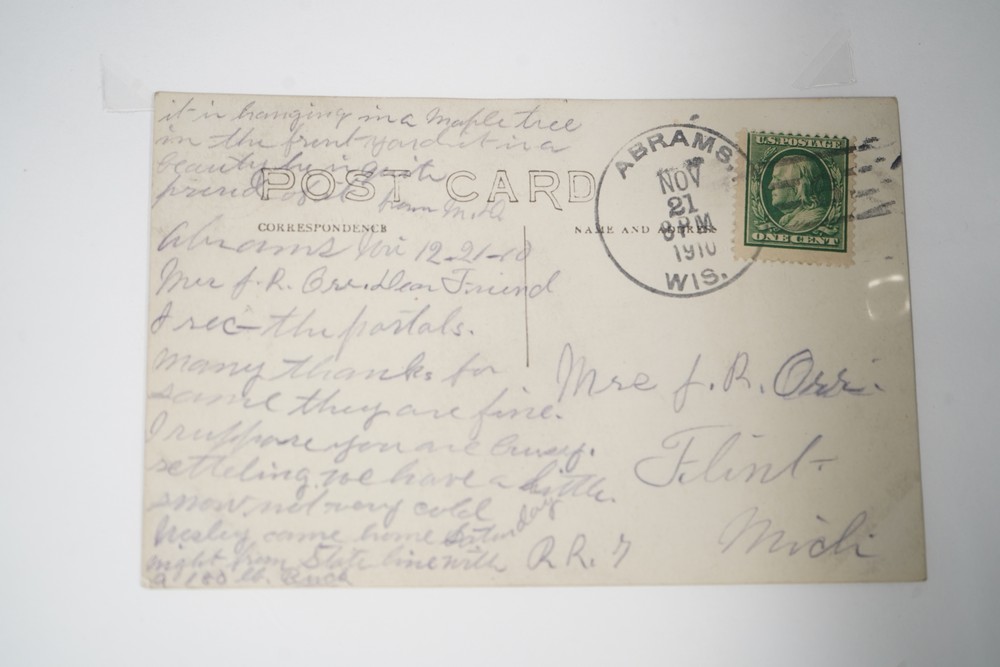 it is hanging in a Maple tree
in the front yard it is a
beauty he is quite
proud of it from M.O.
POST CARD
CORRESPONDENCE
NAME AND ADDRESS
ABRAMS,
NOV
21
8 PM
1910
WIS.
U.S. POSTAGE
ONE CENT
Abrams Wis 12-21-10
Mrs J. R. Orr. Dear Friend
I rec- the postals.
many thanks for
same they are fine.
I suppose you are busy.
settleing. we have a little
snow not very cold
Wesley came home Saturday
night from State line with
a 180 lb. Buck
Mrs J. R. Orr.
Flint
Mich
R.R. 7